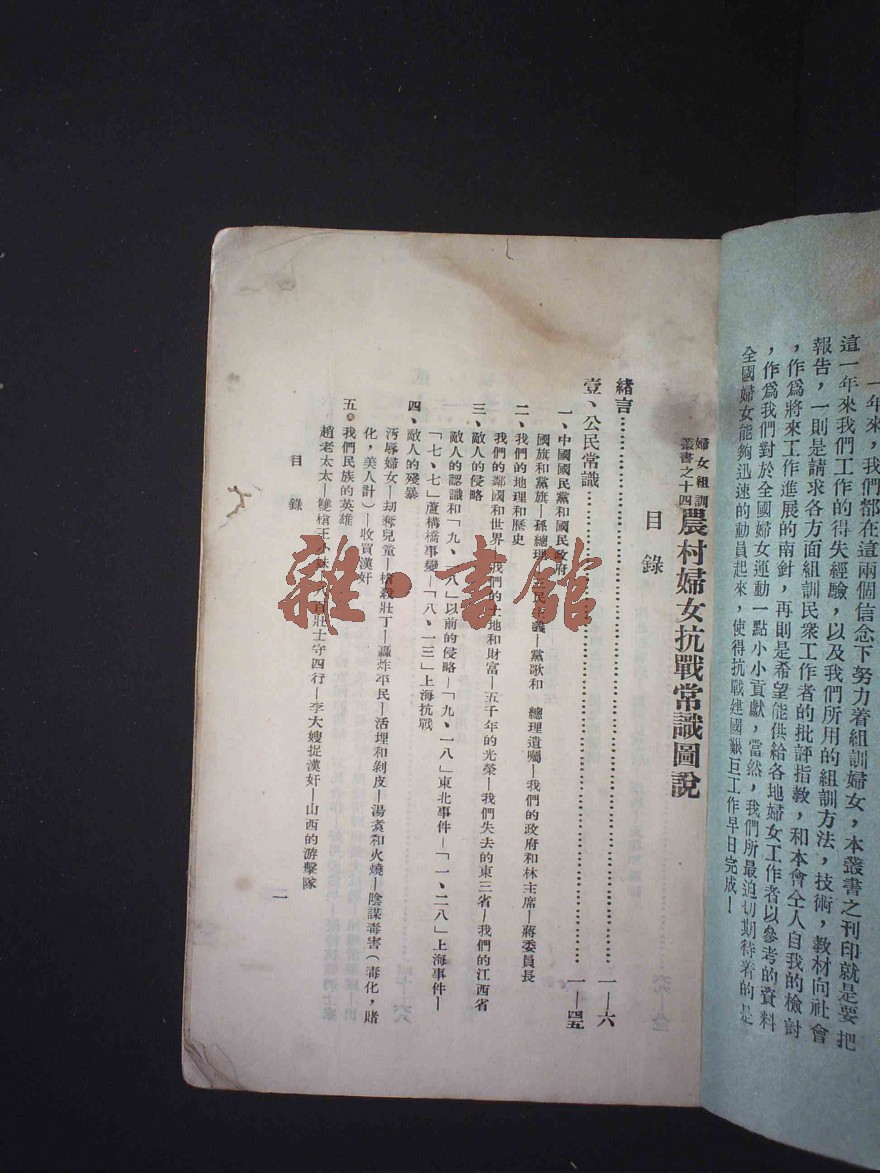 一年來，我們都在這兩個信念下努力着組訓婦女，本叢書之刊印就是要把
這一年來我們工作的得失經驗，以及我們所用的組訓方法，技術，教材向社會
報告，一則是請求各方面組訓民衆工作者的批評指教，和本會仝人自我的檢討
，作爲將來工作進展的南針，再則是希望能供給各地婦女工作者以參考的資料
，作爲我們對於全國婦女運動一點小小貢獻，當然，我們所最迫切期待着的是
全國婦女能夠迅速的動員起來，使得抗戰建國艱巨工作早日完成！
婦女組訓
叢書之十四
農村婦女抗戰常識圖說
目錄
緒言…………一—六
壹、公民常識…………一—四五
一、中國國民黨和國民政府
國旗和黨旗—孫總理—三民主義—黨歌和　總理遺囑—我們的政府和林主席—蔣委員長
二、我們的地理和歷史
我們的鄰國和世界—我們的土地和財富—五千年的光榮—我們失去的東三省—我們的江西省
三、敵人的侵略
敵人的認識和「九、一八」以前的侵略—「九、一八」東北事件—「一、二八」上海事件—
「七、七」蘆構橋事變—「八、一三」上海抗戰
四、敵人的殘暴
汚辱婦女—刧奪兒童—槍殺壯丁—轟炸平民—活埋和剝皮—湯煑和火燒—陰謀毒害（毒化，賭
化，美人計）—收買漢奸
五、我們民族的英雄
趙老太太—雙槍王小妹—八百壯士守四行—李大嫂捉漢奸—山西的游擊隊
目錄
一
雜·書館